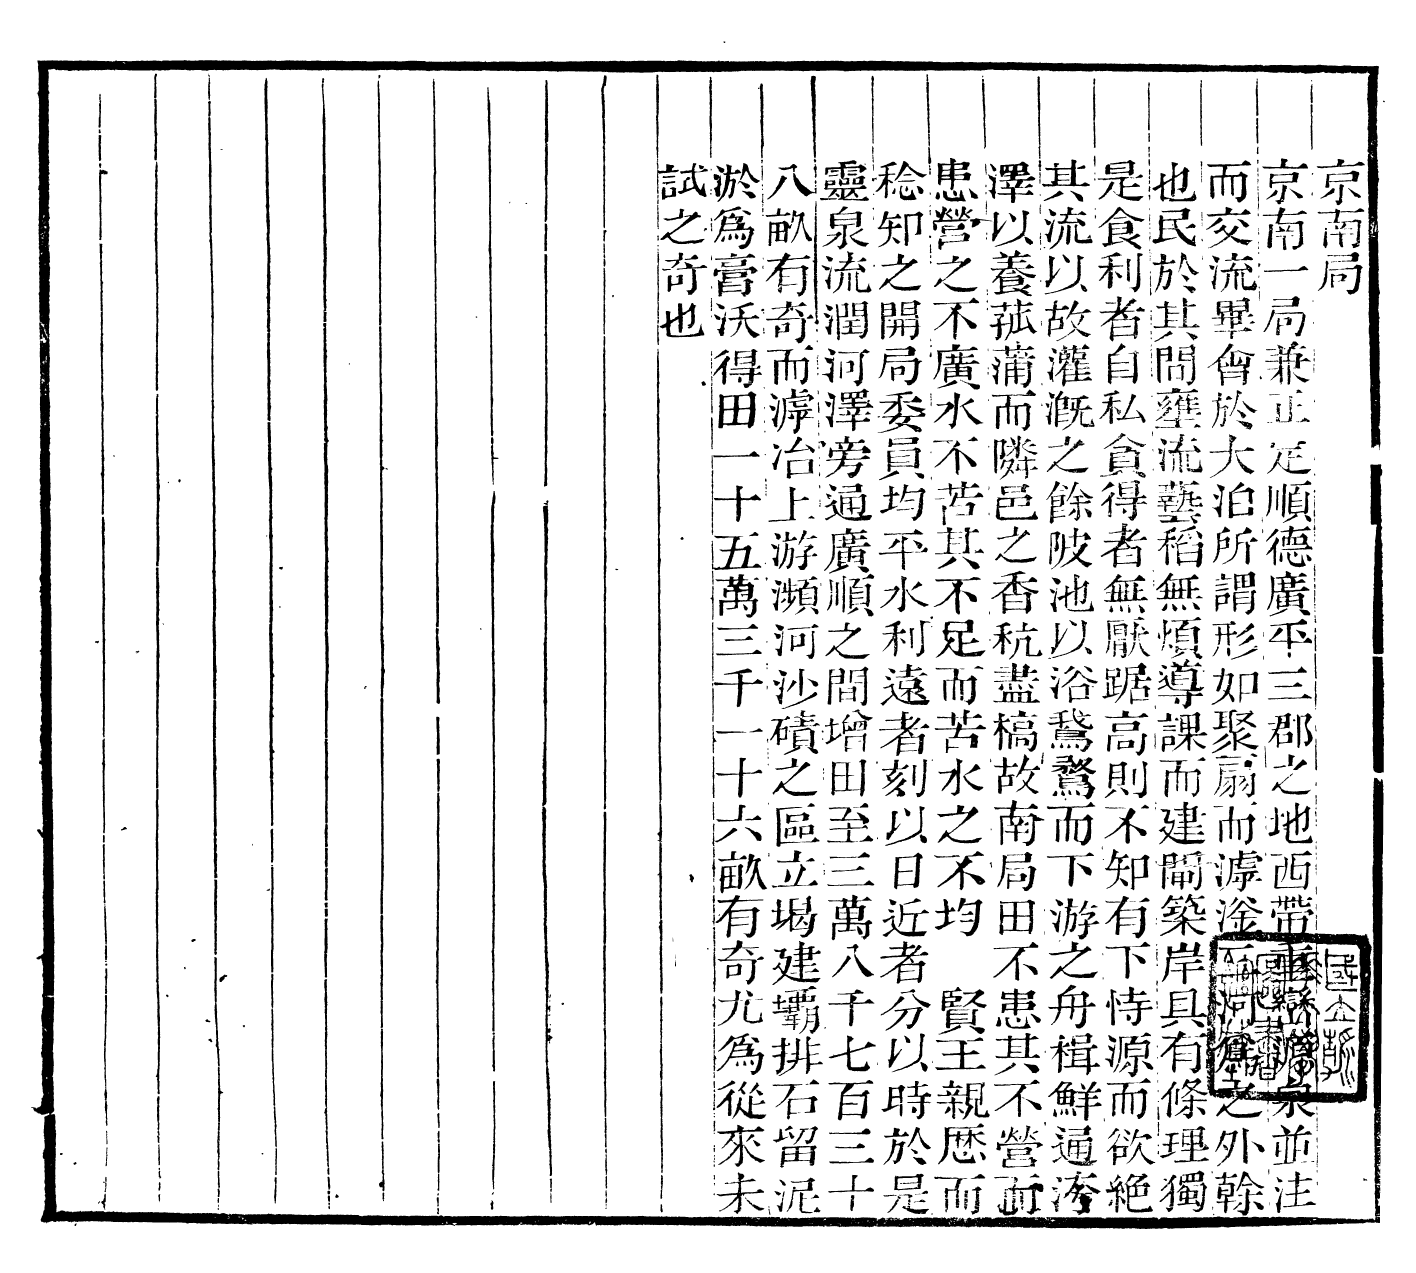 京南局
京南一局兼正定順德廣平三郡之地西帶重巒泉並注
而交流畢會於大泊所謂形如聚扇而滹滏河之外餘
也民於其間壅流藝稻無煩導課而建閘築岸具有條理獨
是食利者自私貪得者無厭踞高則不知有下恃源而欲絕
其流以故灌漑之餘陂池以浴鵞鶩而下游之舟楫鮮通洿
澤以養菰蒲而隣邑之香秔盡槁故南局田不患其不營而
患營之不廣水不苦其不足而苦水之不均　賢王親歷而
稔知之開局委員均平水利遠者刻以日近者分以時於是
靈泉流潤河澤旁通廣順之間增田至三萬八千七百三十
八畝有奇而滹冶上游瀕河沙磧之區立堨建壩排石留泥
淤爲膏沃得田一十五萬三千一十六畝有奇尤爲從來未
試之奇也